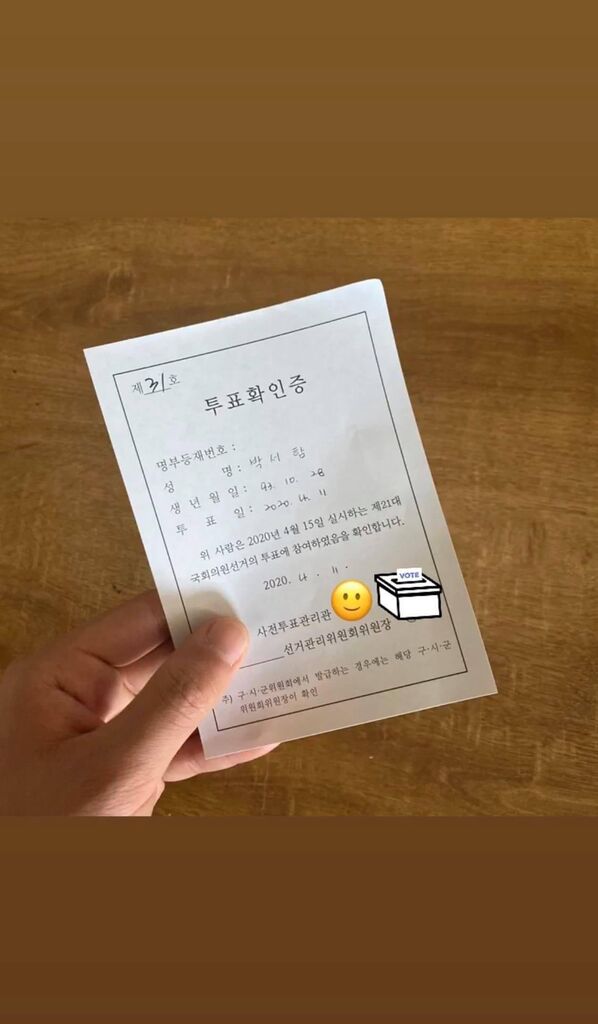 제 31 호
투표확인증
명부등재번호 :
성 명 : 박 서 함
생 년 월 일 : 93. 10. 28
투 표 일 : 2020. 4. 11
위 사람은 2020년 4월 15일 실시하는 제21대
국회의원선거의 투표에 참여하였음을 확인합니다.
2020. 4 . 11 .
VOTE
사전투표관리관
선거관리위원회위원장
주) 구·시·군위원회에서 발급하는 경우에는 해당 구·시·군
위원회위원장이 확인